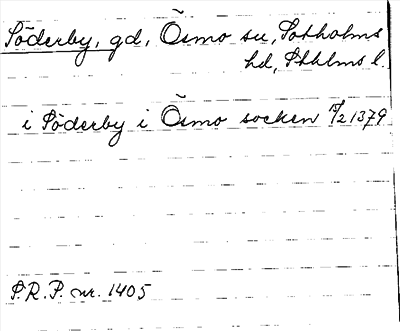 Söderby, gd, Ösmo sn, Sotholms
hd, Sthlms l.
i Söderby i Ösmo socken 2/2 1379
S.R.P. nr. 1405